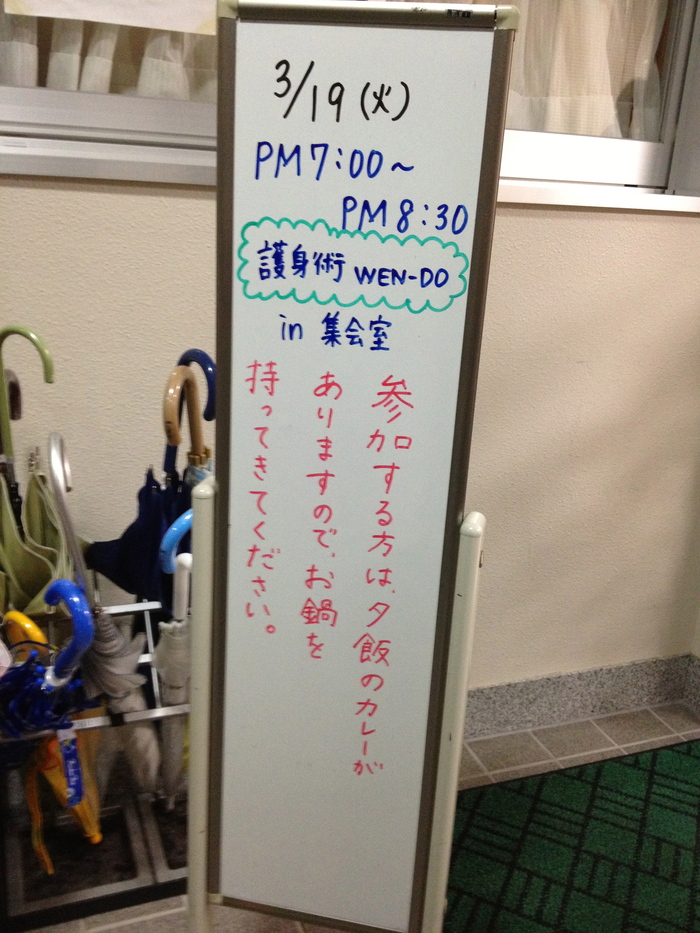 3/19(火)
PM7:00~
PM8:30
護身術 WEN-DO
in 集会室
参加する方は、夕飯のカレーが
ありますので、お鍋を
持ってきてください。